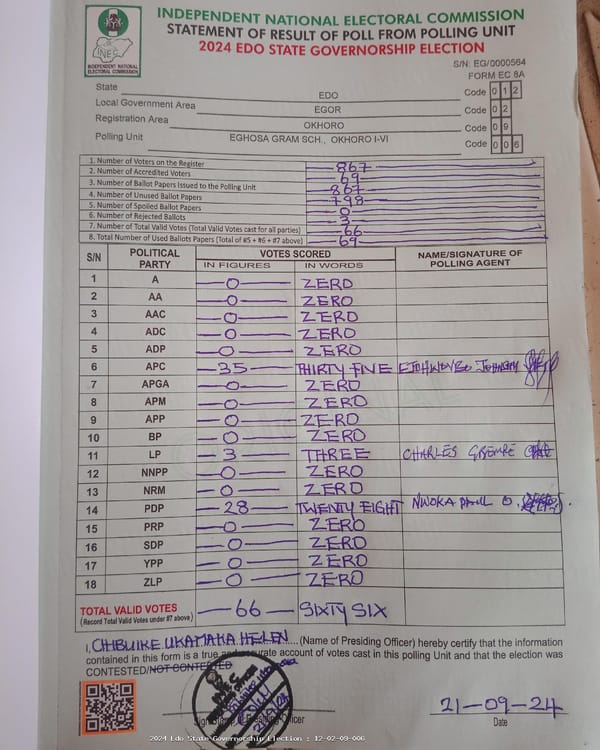 INDEPENDENT NATIONAL ELECTORAL COMMISSION
STATEMENT OF RESULT OF POLL FROM POLLING UNIT
2024 EDO STATE GOVERNORSHIP ELECTION
INEC
INDEPENDENT NATIONAL ELECTORAL COMMISSION
S/N: EG/0000564
FORM EC 8A
State EDO Code 0 1 2
Local Government Area EGOR Code 0 2
Registration Area OKHORO Code 0 9
Polling Unit EGHOSA GRAM SCH., OKHORO I-VI Code 0 0 6
1. Number of Voters on the Register 867
2. Number of Accredited Voters 69
3. Number of Ballot Papers Issued to the Polling Unit 867
4. Number of Unused Ballot Papers 798
5. Number of Spoiled Ballot Papers 0
6. Number of Rejected Ballots 3
7. Number of Total Valid Votes (Total Valid Votes cast for all parties) 66
8. Total Number of Used Ballots Papers (Total of #5 + #6 + #7 above) 69
S/N POLITICAL PARTY VOTES SCORED NAME/SIGNATURE OF POLLING AGENT
IN FIGURES IN WORDS
1 A 0 ZERO
2 AA 0 ZERO
3 AAC 0 ZERO
4 ADC 0 ZERO
5 ADP 0 ZERO
6 APC 35 THIRTY FIVE
7 APGA 0 ZERO
8 APM 0 ZERO
9 APP 0 ZERO
10 BP 0 ZERO
11 LP 3 THREE CHARLES
12 NNPP 0 ZERO
13 NRM 0 ZERO
14 PDP 28 TWENTY EIGHT NWOKA PAUL O.
15 PRP 0 ZERO
16 SDP 0 ZERO
17 YPP 0 ZERO
18 ZLP 0 ZERO
TOTAL VALID VOTES 66 SIXTY SIX
(Record Total Valid Votes under #7 above)
I, CHIBUIKE UKAMAKA HELEN (Name of Presiding Officer) hereby certify that the information
contained in this form is a true and accurate account of votes cast in this polling Unit and that the election was
CONTESTED/NOT CONTESTED
21-09-24
Date
2024 Edo State Governorship Election : 12-02-09-006